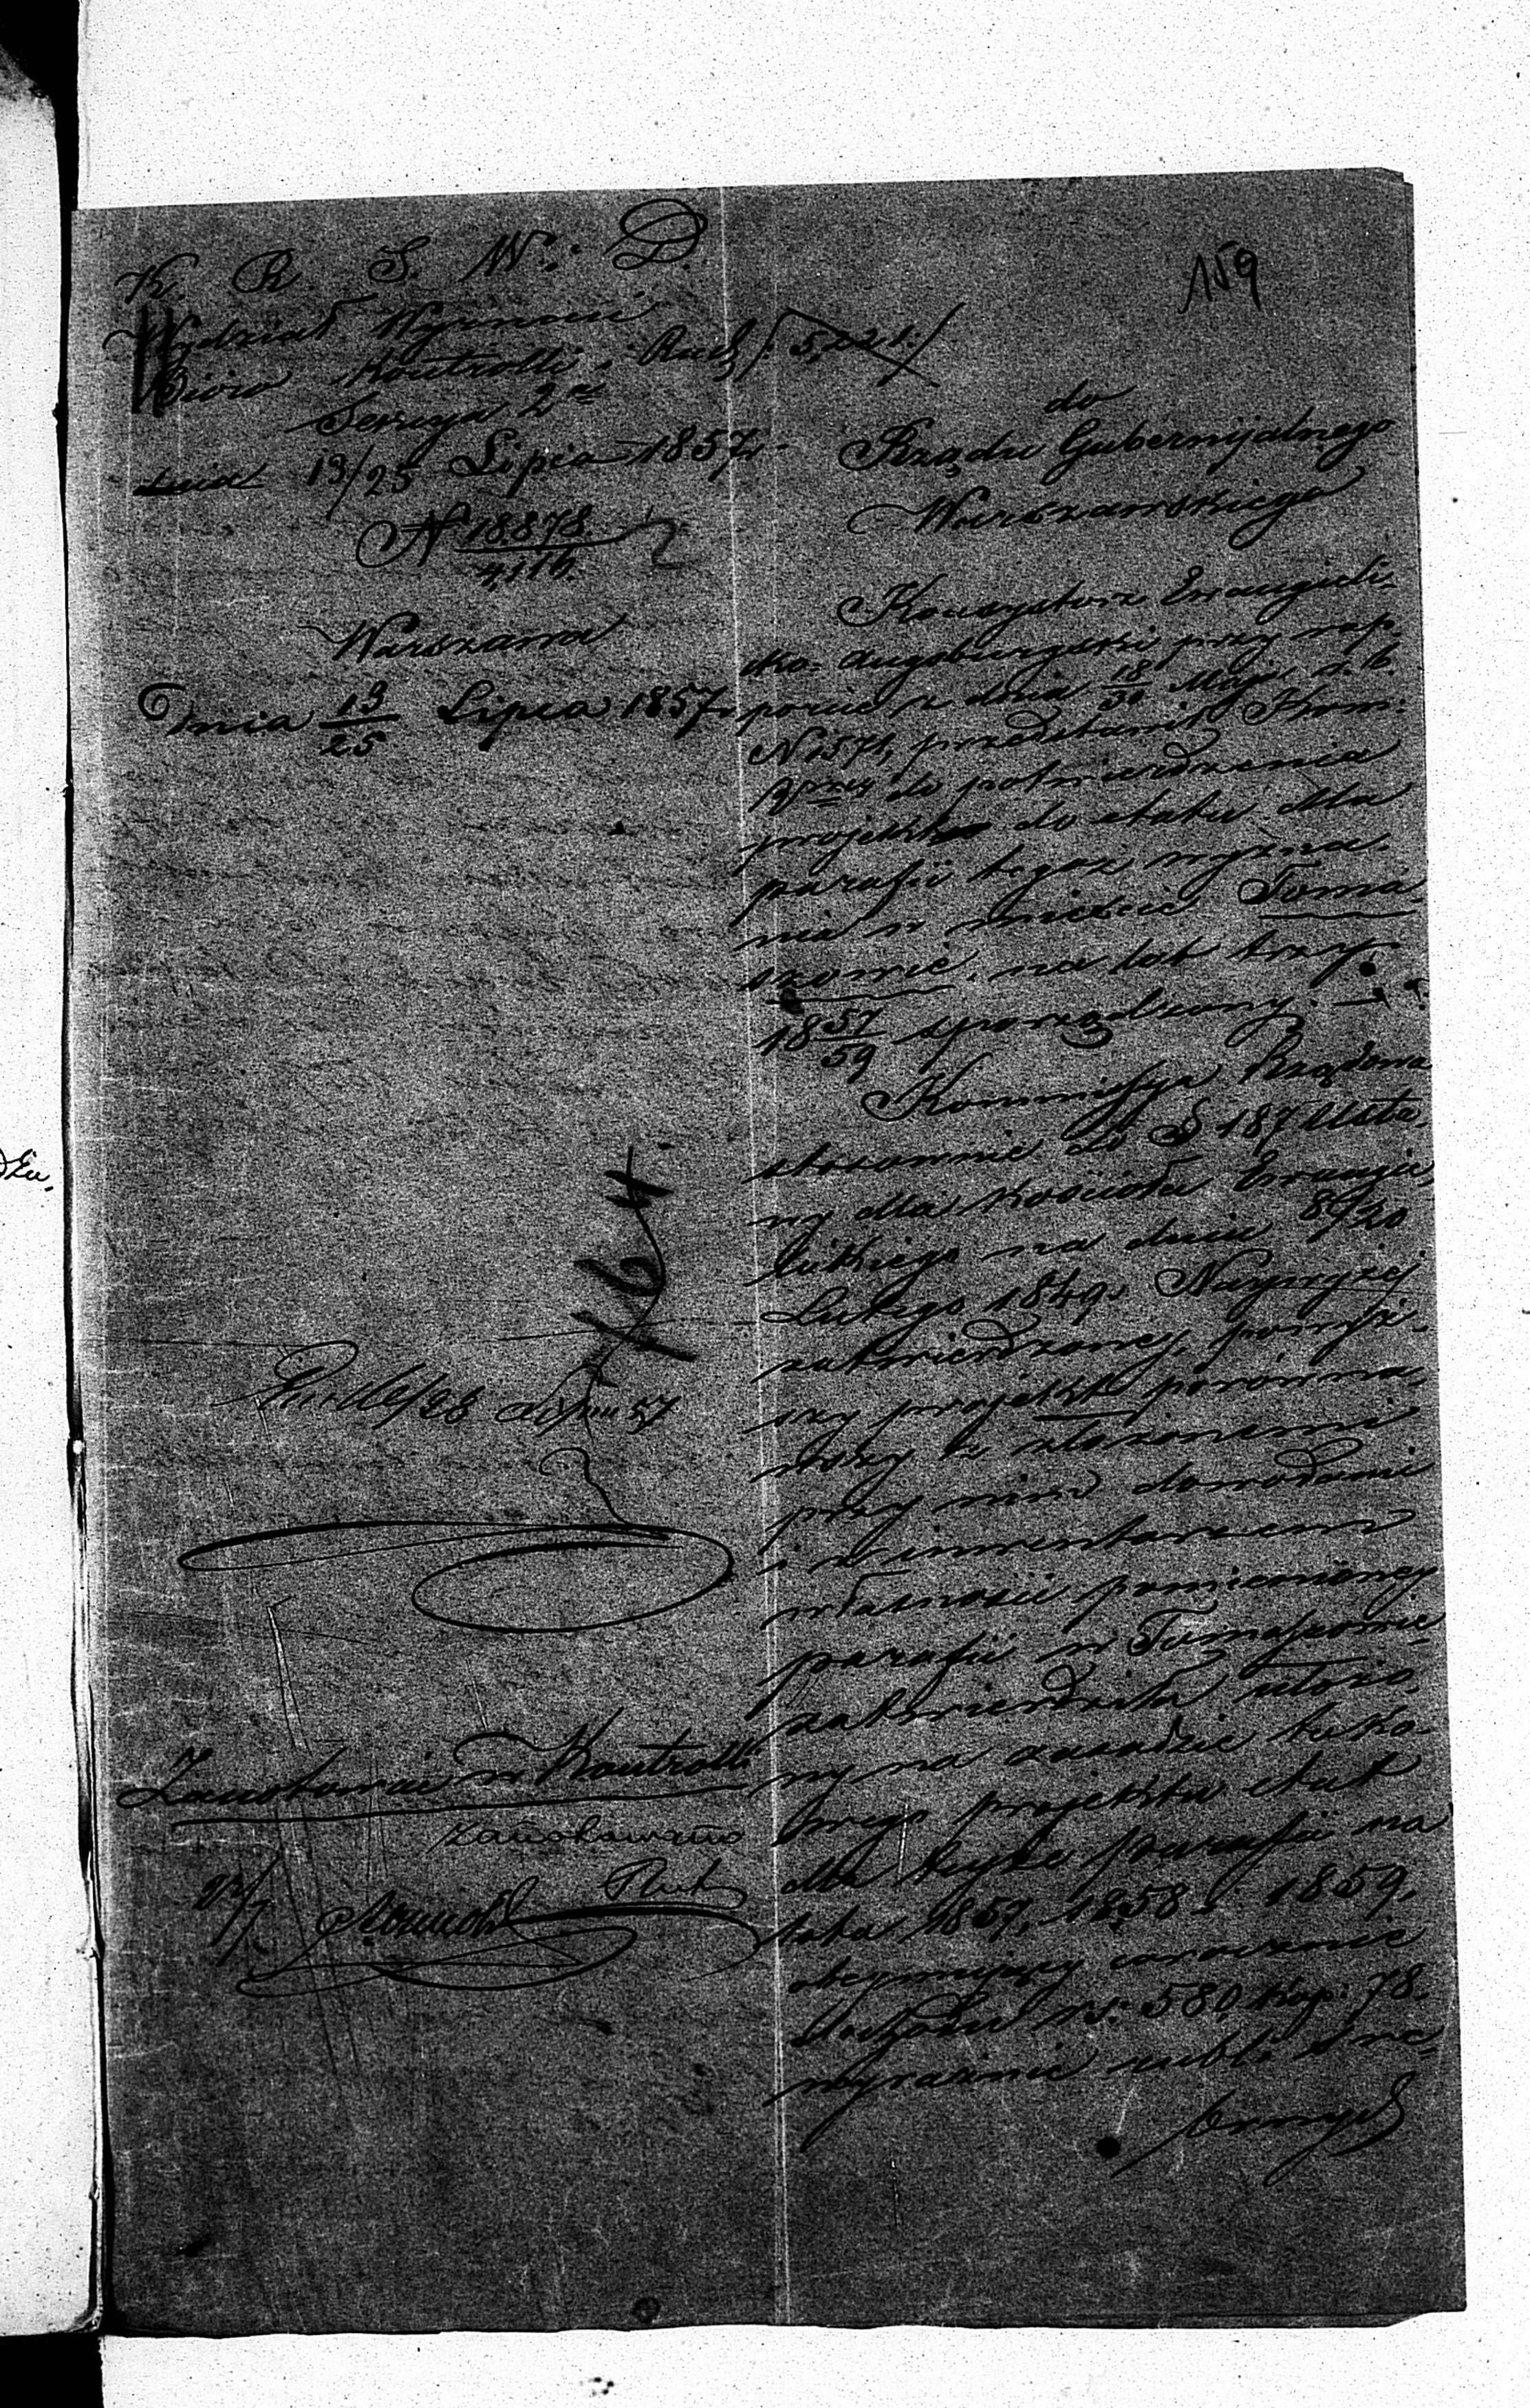 159
K. R. S. W. D.
Wydział Wyznań
Biuro Kontrolli i Rach /: 5,221:/
Sekcya 2
dnia 13/25 Lipca 1857
N 18878
Warszawa
Dnia 13/25 Lipca 1857
do
Rządu Gubernijalnego
Warszawskiego
Konsystorz Ewangieli-
cko-Augsburgski przy rap-
porcie z dnia 18/30 Maja r. b.
N 1571, przedstawił Kom:
do potwierdzenia
projekt do etatu dla
parafii tegoż wyzna-
nia w mieście Toma-
szowie, na lat trzy
18 57/59 sporządzony.
Kommissya Rządowa
stosownie do § 187 Usta-
wy dla Kościoła Ewangie-
lickiego na dniu 8/20
Lutego 1849 r. Najwyżej
zatwierdzonej, powyż-
szy projekt porówna-
wszy z złożonemi
przy nim dowodami
i z inwentarzem
własności pomienionej
parafii w Tomaszowie
zatwierdziła ułożo-
ny na zasadzie tako-
wego projektu etat
dla tejże parafii na
lata 1857, 1858 i 1859,
obejmujący corocznie
dochodu rs: 580 kop: 78.
wyraźnie rubli sre-
164.
28 57
Zanotować w Kontrolli
zanotowano